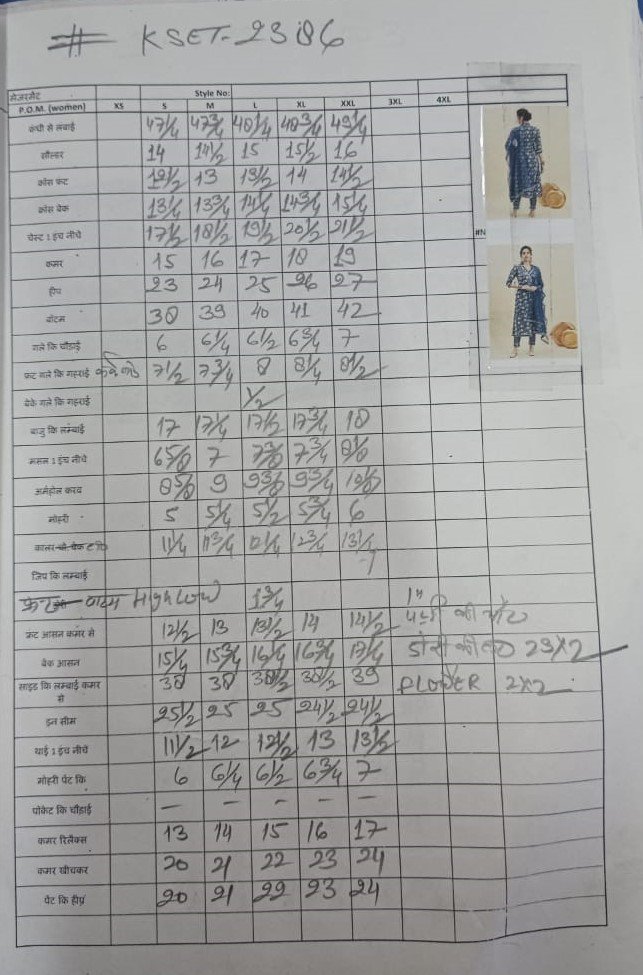 # KSET-2386
मेजरमेंट Style No:
P.O.M. (women) XS S M L XL XXL 3XL 4XL
कंधी से लंबाई 47 1/4 47 3/4 48 1/4 48 3/4 49 1/4
सोल्डर 14 14 1/2 15 15 1/2 16
क्रॉस फ्रंट 12 1/2 13 13 1/2 14 14 1/2
क्रॉस बेक 13 1/4 13 3/4 14 1/4 14 3/4 15 1/4
चेस्ट 1 इंच नीचे 17 1/2 18 1/2 19 1/2 20 1/2 21 1/2
#N
कमर 15 16 17 18 19
हीप 23 24 25 26 27
बॉटम 38 39 40 41 42
गले कि चौड़ाई 6 6 1/4 6 1/2 6 3/4 7
फ्रंट गले कि गहराई 7 1/2 7 3/4 8 8 1/4 8 1/2
बेक गले कि गहराई 1/2
बाजु कि लम्बाई 17 17 1/4 17 1/2 17 3/4 18
मसल 1 इंच नीचे 6 5/8 7 7 3/8 7 3/4 8 1/8
अर्महोल करव 8 5/8 9 9 3/8 9 3/4 10 1/8
मोहरी 5 5 1/4 5 1/2 5 3/4 6
कालर 11 1/4 11 3/4 12 1/4 12 3/4 13 1/4
जिप कि लम्बाई
High Low 1 3/4 1"
फ्रंट आसन कमर से 12 1/2 13 13 1/2 14 14 1/2 पट्टी की
बेक आसन 15 1/4 15 3/4 16 1/4 16 3/4 17 1/4 डोरी की 23X2
साइड कि लम्बाई कमर से 38 38 38 1/2 38 1/2 39 FLOWER 2X2
इन सीम 25 1/2 25 25 24 1/2 24 1/2
थाई 1 इंच नीचे 11 1/2 12 12 1/2 13 13 1/2
मोहरी पेंट कि 6 6 1/4 6 1/2 6 3/4 7
पोकेट कि चौड़ाई — — — — —
कमर रिलैक्स 13 14 15 16 17
कमर खीचकर 20 21 22 23 24
पेंट कि हीप 20 21 22 23 24